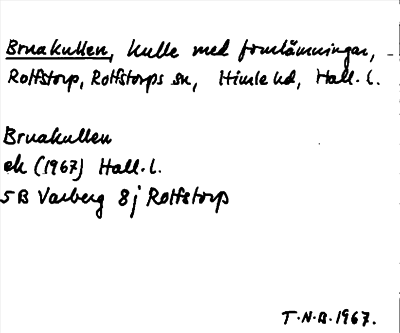 Bruakullen, kulle med fornlämningar,
Rolfstorp, Rolfstorps sn, Himle hd, Hall. l.
Bruakullen
ek (1967) Hall. l.
5B Varberg 8j Rolfstorp
T.N.B. 1967.